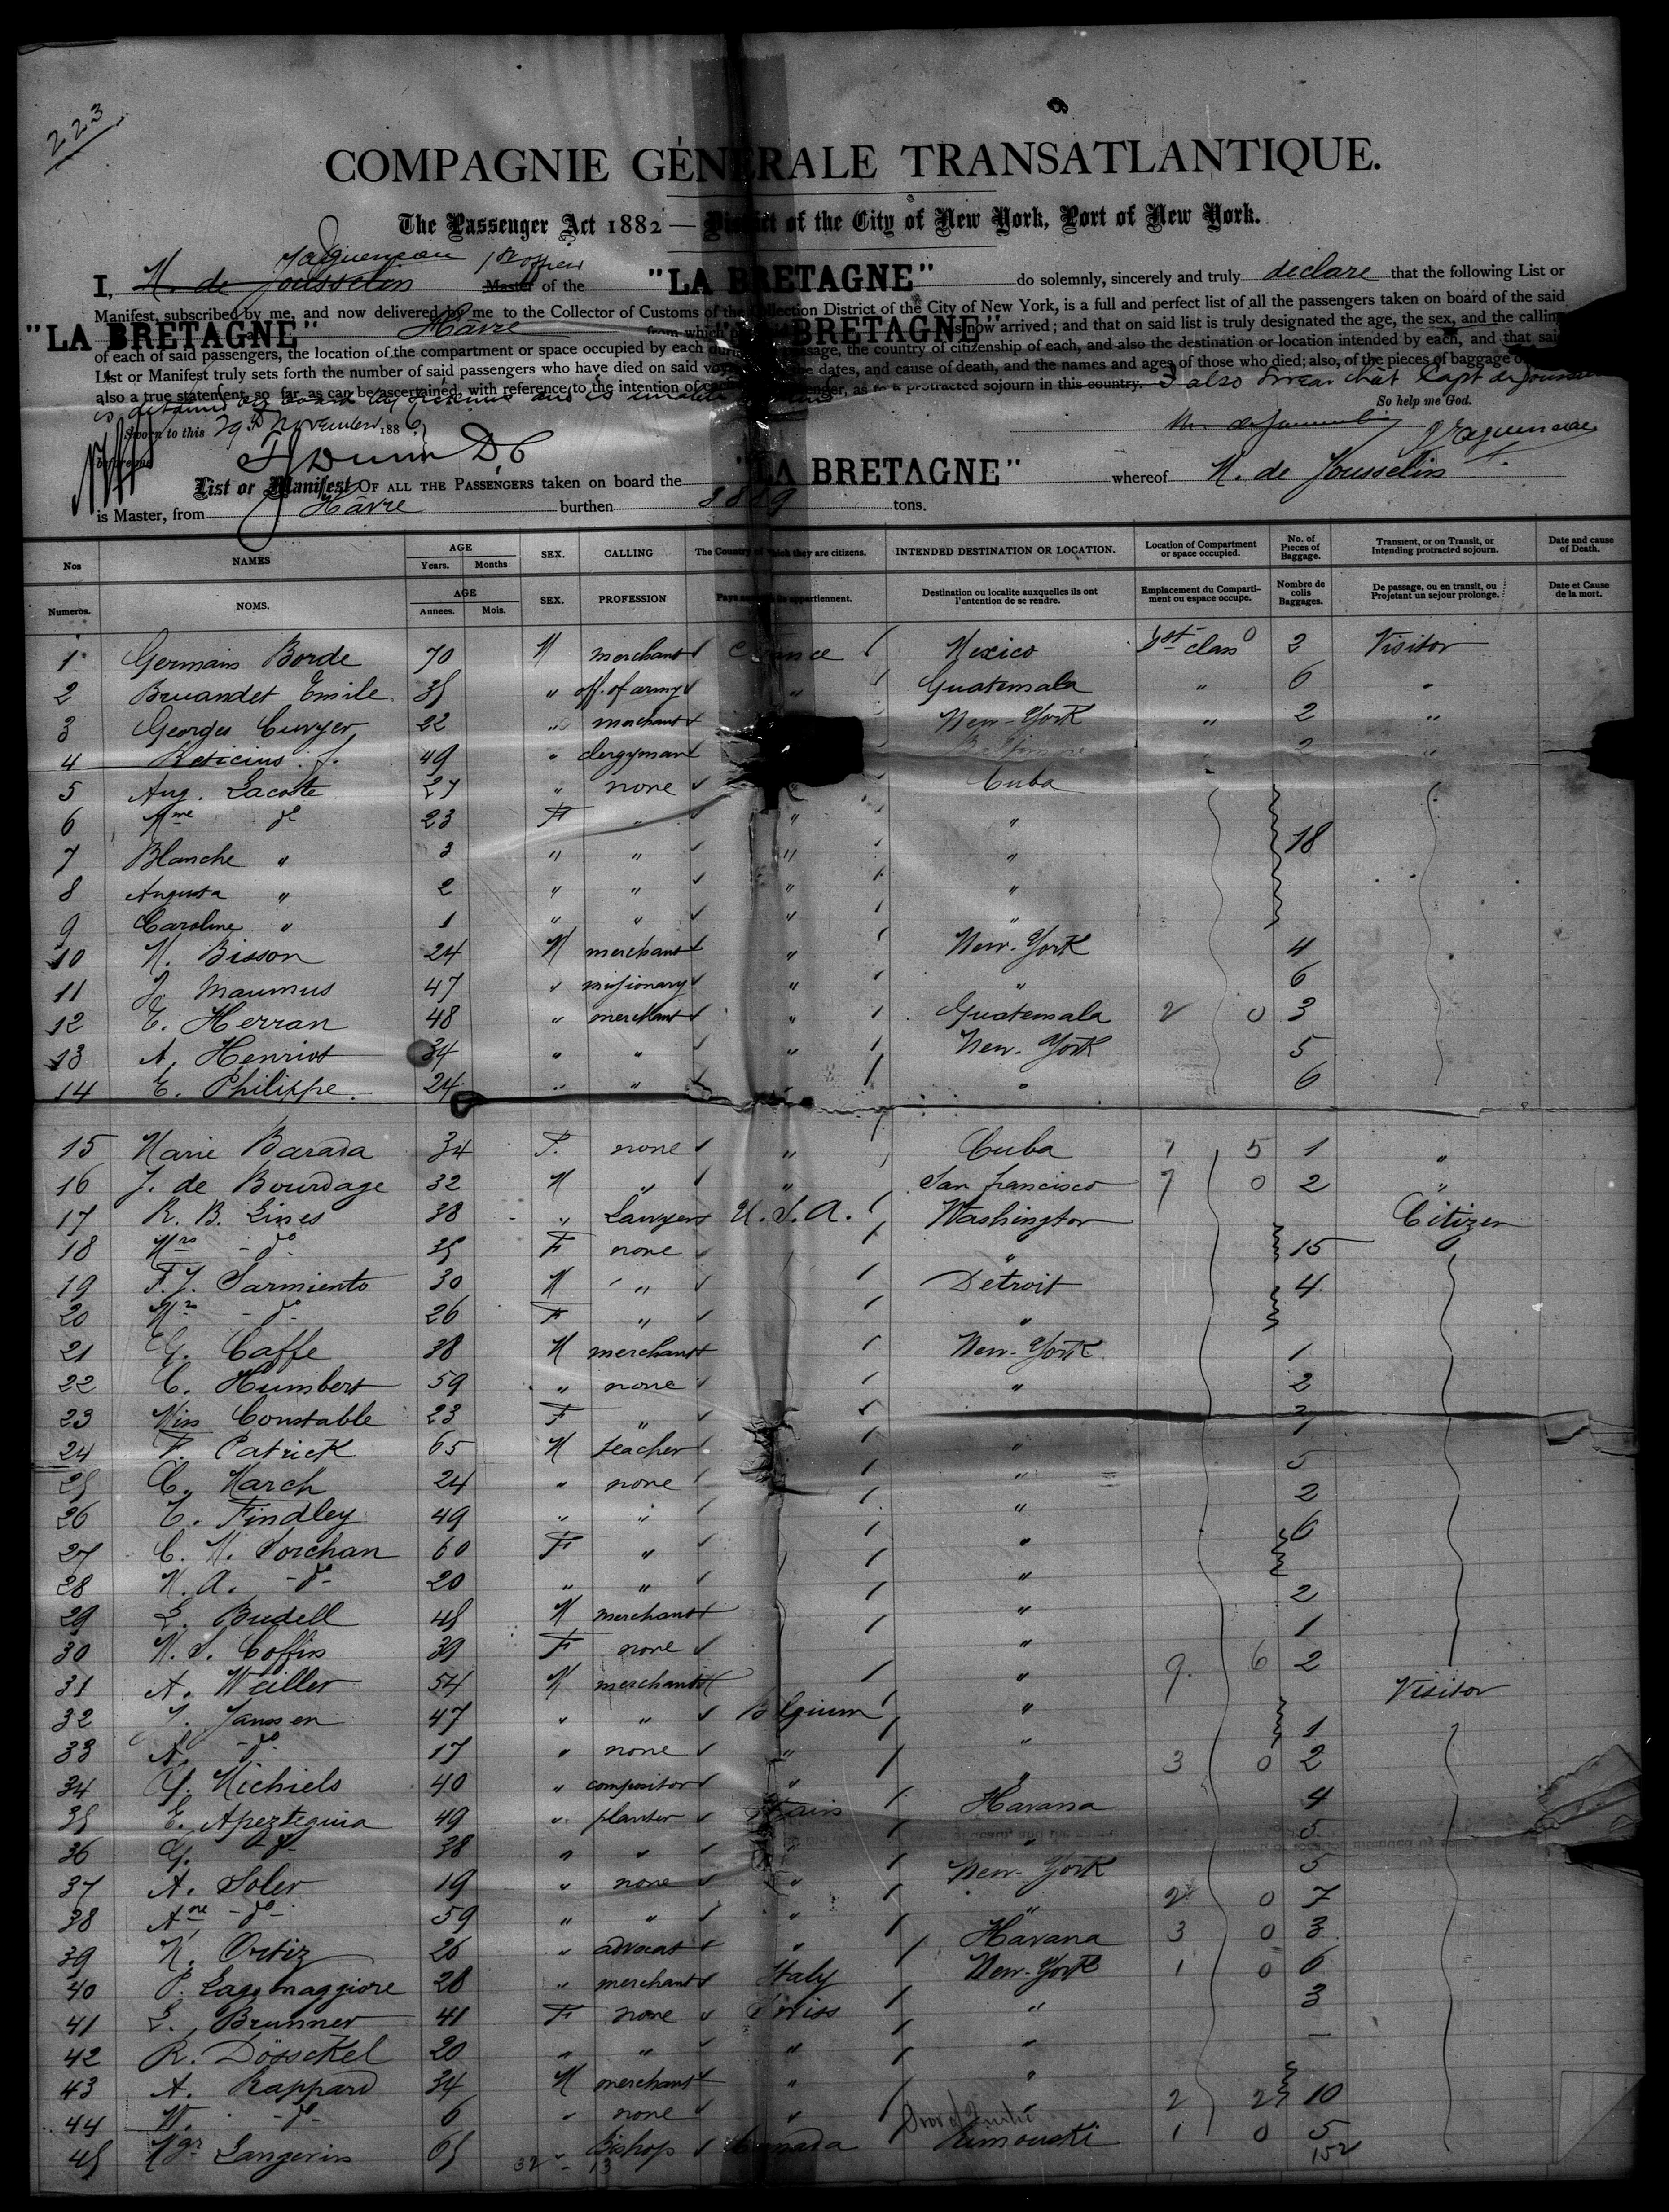 223
COMPAGNIE GÉNÉRALE TRANSATLANTIQUE.
The Passenger Act 1882 — District of the City of New York, Port of New York.
Jagueneau 1st Officer
I, M. de Jousselin Master of the "LA BRETAGNE" do solemnly, sincerely and truly declare that the following List or
Manifest, subscribed by me, and now delivered by me to the Collector of Customs of the Collection District of the City of New York, is a full and perfect list of all the passengers taken on board of the said
"LA BRETAGNE" Hâvre from which "LA BRETAGNE" has now arrived; and that on said list is truly designated the age, the sex, and the calling
of each of said passengers, the location of the compartment or space occupied by each during passage, the country of citizenship of each, and also the destination or location intended by each, and that said
List or Manifest truly sets forth the number of said passengers who have died on said voyage, the dates, and cause of death, and the names and ages of those who died; also, of the pieces of baggage
also a true statement, so far as can be ascertained, with reference to the intention of each passenger, as to a protracted sojourn in this country. I also swear that Capt de Jousselin
is detained on board by and is unable
So help me God.
Sworn to this 29th November 1886
before me
List or Manifest OF ALL THE PASSENGERS taken on board the "LA BRETAGNE" whereof M. de Jousselin
is Master, from Hâvre burthen tons.
Nos NAMES AGE Years. Months SEX. CALLING The Country of which they are citizens. INTENDED DESTINATION OR LOCATION. Location of Compartment or space occupied. No. of Pieces of Baggage. Transient, or on Transit, or Intending protracted sojourn. Date and cause of Death.
Numeros. NOMS. AGE Annees. Mois. SEX. PROFESSION Pays appartiennent. Destination ou localite auxquelles ils ont l'entention de se rendre. Emplacement du Compartiment ou espace occupe. Nombre de colis Baggages. De passage, ou en transit, ou Projetant un sejour prolonge. Date et Cause de la mort.
1 Germain Borde 70 M merchant France Mexico 1st class 2 Visitor
2 Bruandet Emile 35 " off. of army " Guatemala " 6 "
3 Georges Cuvyer 22 " merchant New-York " 2 "
4 Reticius. f. 49 " clergyman Baltimore 2 "
5 Aug. Lacoste 27 " none Cuba
6 Mme do 23 F " " "
7 Blanche " 3 " " " " 18
8 Augusta " 2 " " " "
9 Caroline " 1 " " " "
10 M. Bisson 24 M merchant " New-York 4
11 J. Maumus 47 " missionary " " 6
12 E. Herran 48 " merchant " Guatemala 2 0 3
13 A. Henriot 34 " " " New-York 5
14 E. Philippe. 24 " " " 6
15 Marie Barada 34 F. none " Cuba 1 5 1 "
16 J. de Bourdage 32 M " " San francisco 7 0 2 "
17 R. B. Lines 38 " Lawyer U.S.A. Washington Citizen
18 Mrs - do - 35 F none " 15
19 F. J. Sarmiento 30 M " Détroit 4
20 Mrs - do - 26 F " "
21 G. Caffe 38 M merchant New-York 1
22 C. Humbert 59 " none " 2
23 Miss Constable 23 F " 2
24 F. Patrick 65 M teacher " 1
25 C. March 24 " none " 5
26 E. Findley 49 " " " 2
27 C. M. Sorchan 60 F " " 6
28 M. A. - do - 20 " " "
29 L. Budell 45 M merchant " 2
30 M. S. Coffin 39 F none " 1
31 A. Weiller 54 M merchant " 9 6 2
32 J. Janssen 47 " " Belgium " Visitor
33 A. - do - 17 " none " " 1
34 G. Michiels 40 " compositor " " 3 0 2
35 E. Apezteguia 49 " planter Spain Havana 4
36 G. - do - 38 " " " " 5
37 A. Soler 19 " none " New-York 5
38 Ane - do - 59 " " " " 2 0 7
39 M. Ortiz 26 " advocat " Havana 3 0 3
40 P. Lagomaggiore 28 " merchant Italy New-York 1 0 6
41 L. Brunner 41 F none Swiss " 3
42 R. Dösckel 20 " " " " —
43 A. Rappard 34 M merchant " "
44 W. - do - 6 " none " " 2 2 10
45 Mgr Langevin 65 " Bishop Canada Rimouski 1 0 5
32 - 13 152